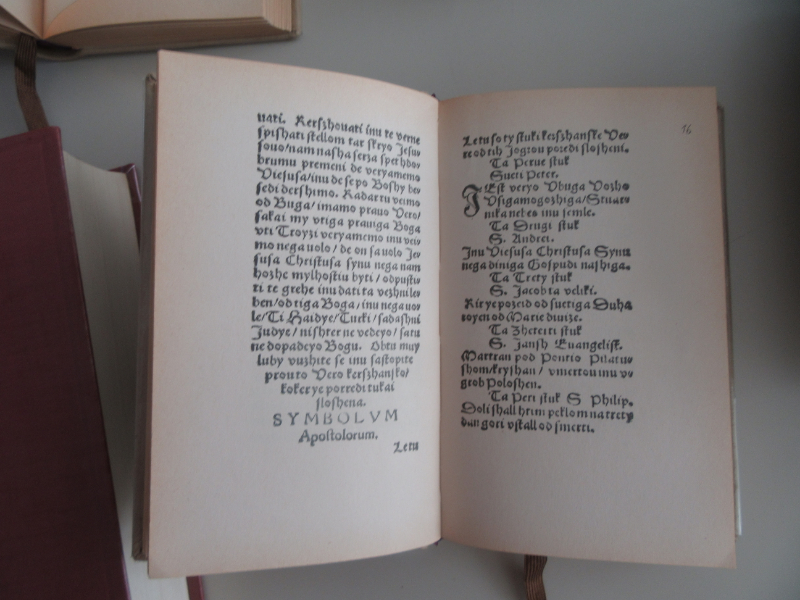 vati. Kerszhovati inu te verne
spishati stellom tar skryo Jesu
sovo/nam nasha serza spet hdo
brumu premeni de veryamemo
Viesusa/inu de sepo Boshy be
sedi dershimo. Kadar tu veimo
od Buga/imamo pravo Vero/
sakai my vtiga praviga Boga
vti Troyzi veryamemo inu vei
mo nega volo/de on sa volo Je
susa Christusa synu nega nam
hozhe mylhostiu byti/odpusti
ti te grehe inu dati ta vezhni le
ben/od tiga Boga/inu nega vo
le/Ti Haidye/Turki/sadashni
Judye/nishter ne vedeyo/satu
ne dopadeyo Bogu. Obtu muy
luby vuzhite se inu sastopite
pravto Vero kerszhansko/
kokerye porredi tukai
sloshena.
SYMBOLVM
Apostolorum.
Letu
16
Letu so ty stuki kerszhanske Ve
re od tih Jogrou poredi slosheni.
Ta Perue stuk
Sueti Peter.
JEst veryo Vbuga Vozho
Vsigamogozhiga/Stuar
nika nebes inu semle.
Ta Drugi stuk
S. Andrei.
Inu Viesusa Christusa Synu
nega diniga Gospudi nashiga.
Ta Trety stuk
S. Jacob ta veliki.
Kir ye pozeid od suetiga Duha
royen od Marie divize.
Ta Zheterti stuk
S. Jansh Euangelist.
Martran pod Pontio Pilatu
shom/kryshan/vmertou inu v
grob Poloshen.
Ta Peti stuk S Philip.
Doli shall htim peklom na trety
dan gori vstall od smerti.